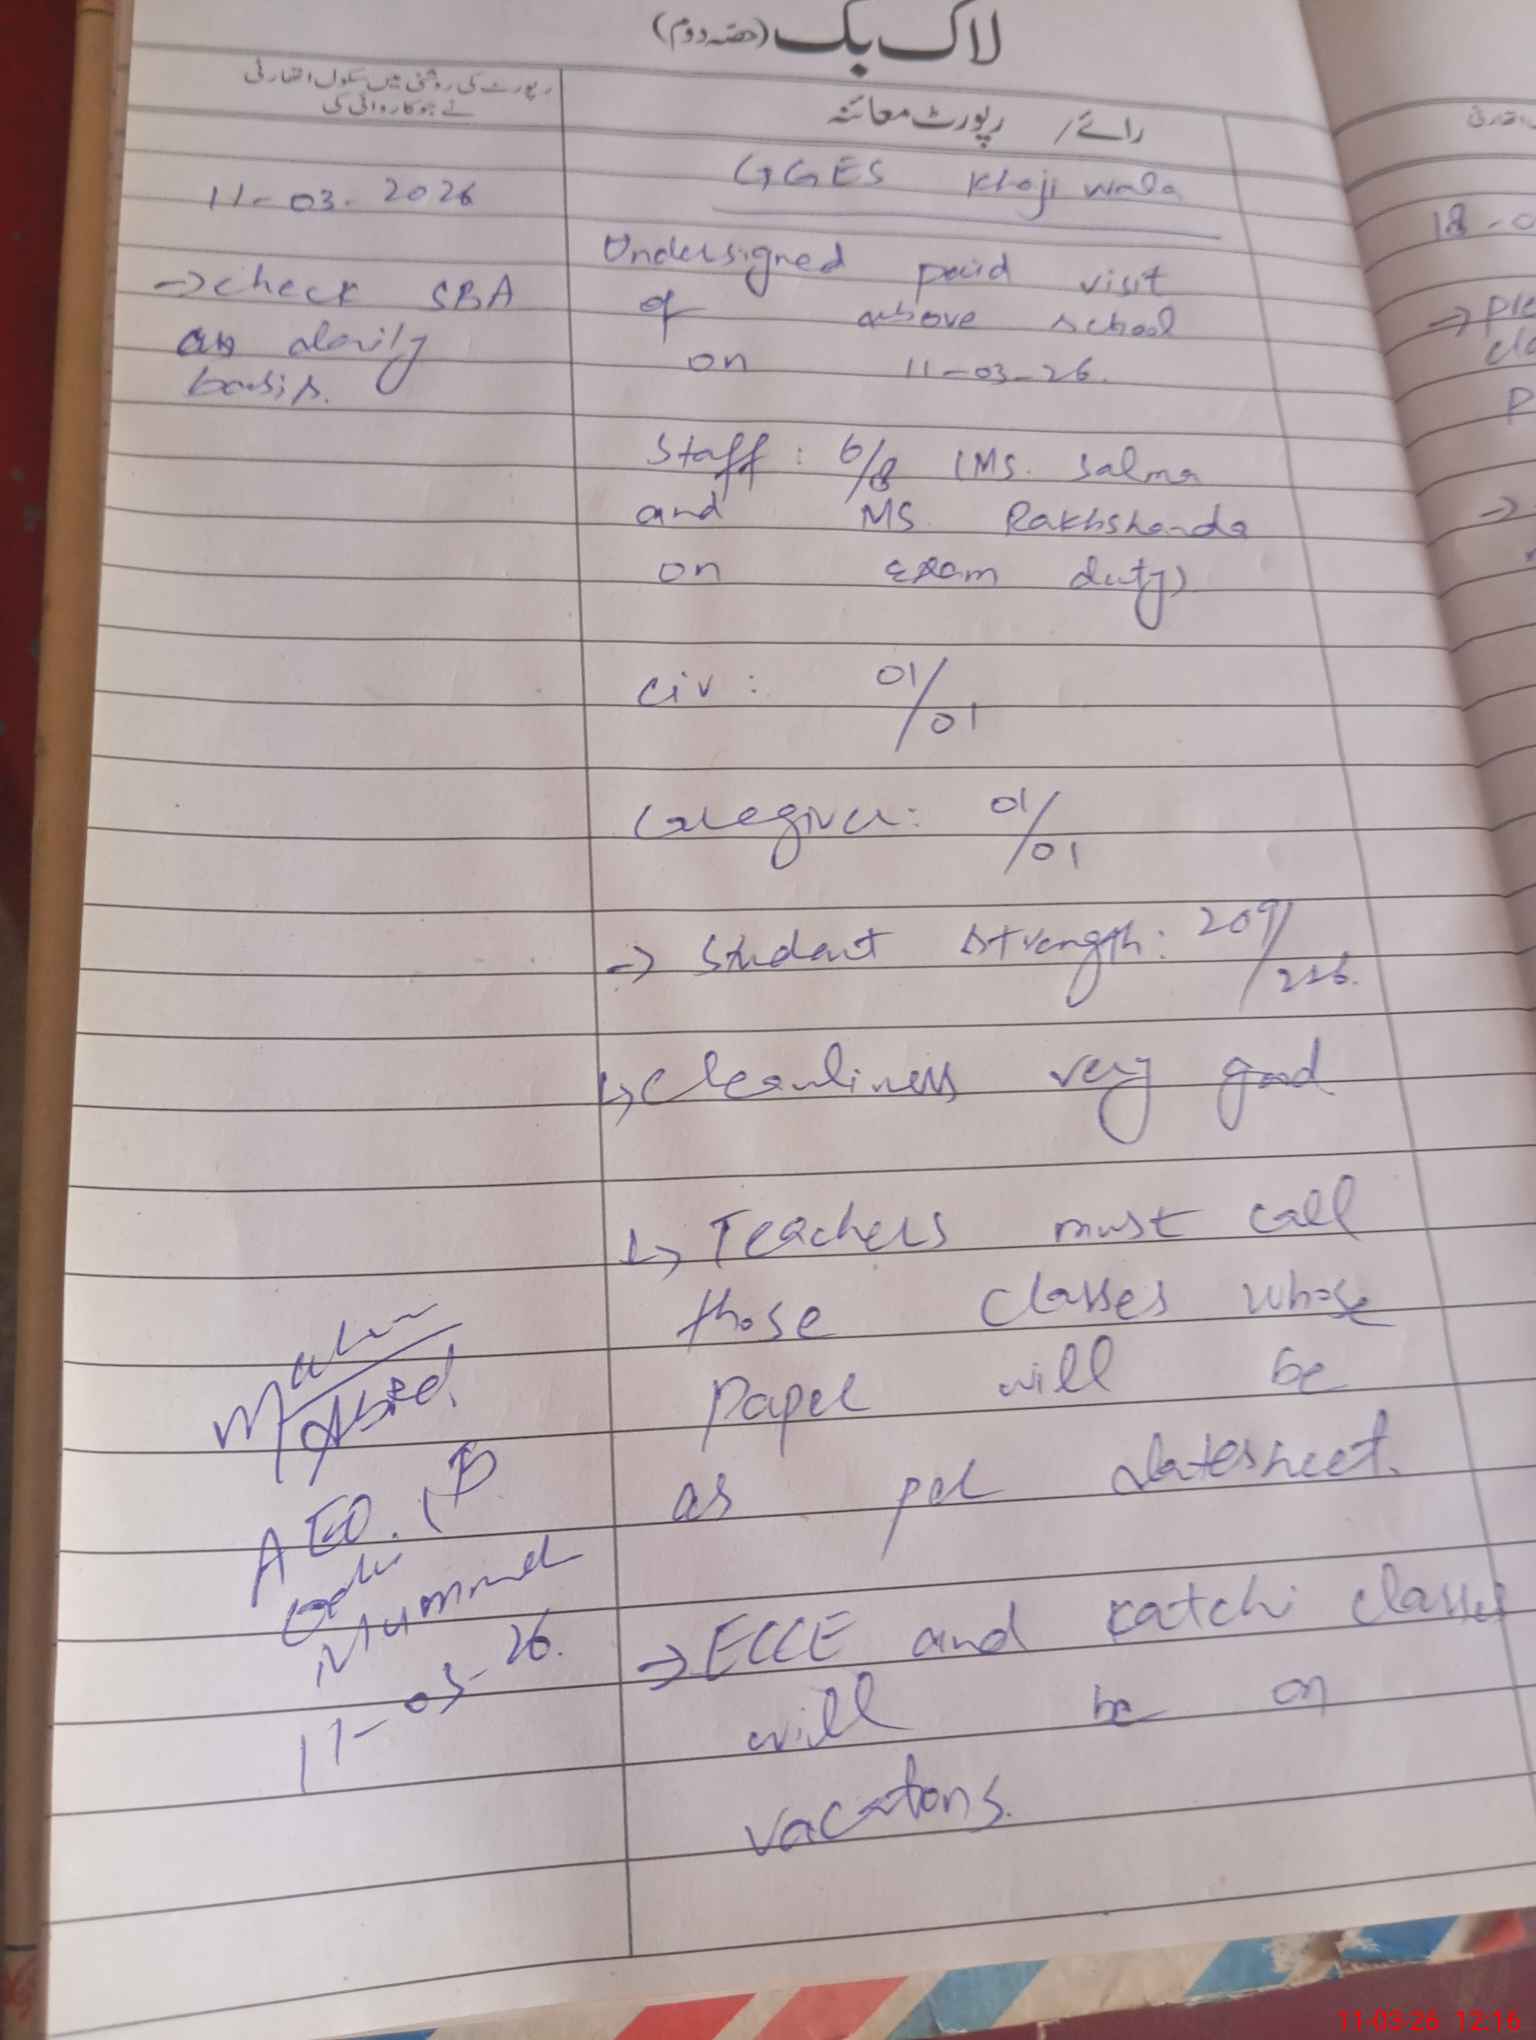 لاگ بک (حصہ دوم)
رپورٹ کی روشنی میں سکول اتھارٹی
نے جو کاروائی کی
رائے / رپورٹ معائنہ
GGES Khoji wala
11-03-2026
Undersigned paid visit
of above school
on 11-03-26.
→ check SBA
on daily
basis.
Staff: 6/8 (MS. Salma
and MS. Rakhshanda
on exam duty)
Civ: 01/01
Caregiver: 01/01
→ Student strength: 209/226.
↳ Cleanliness very good
↳ Teachers must call
those classes whose
paper will be
as per datesheet.
→ ECCE and katchi classes
will be on
vacatons.
Abid
AEO.
11-03-26.
11-03-26 12:16